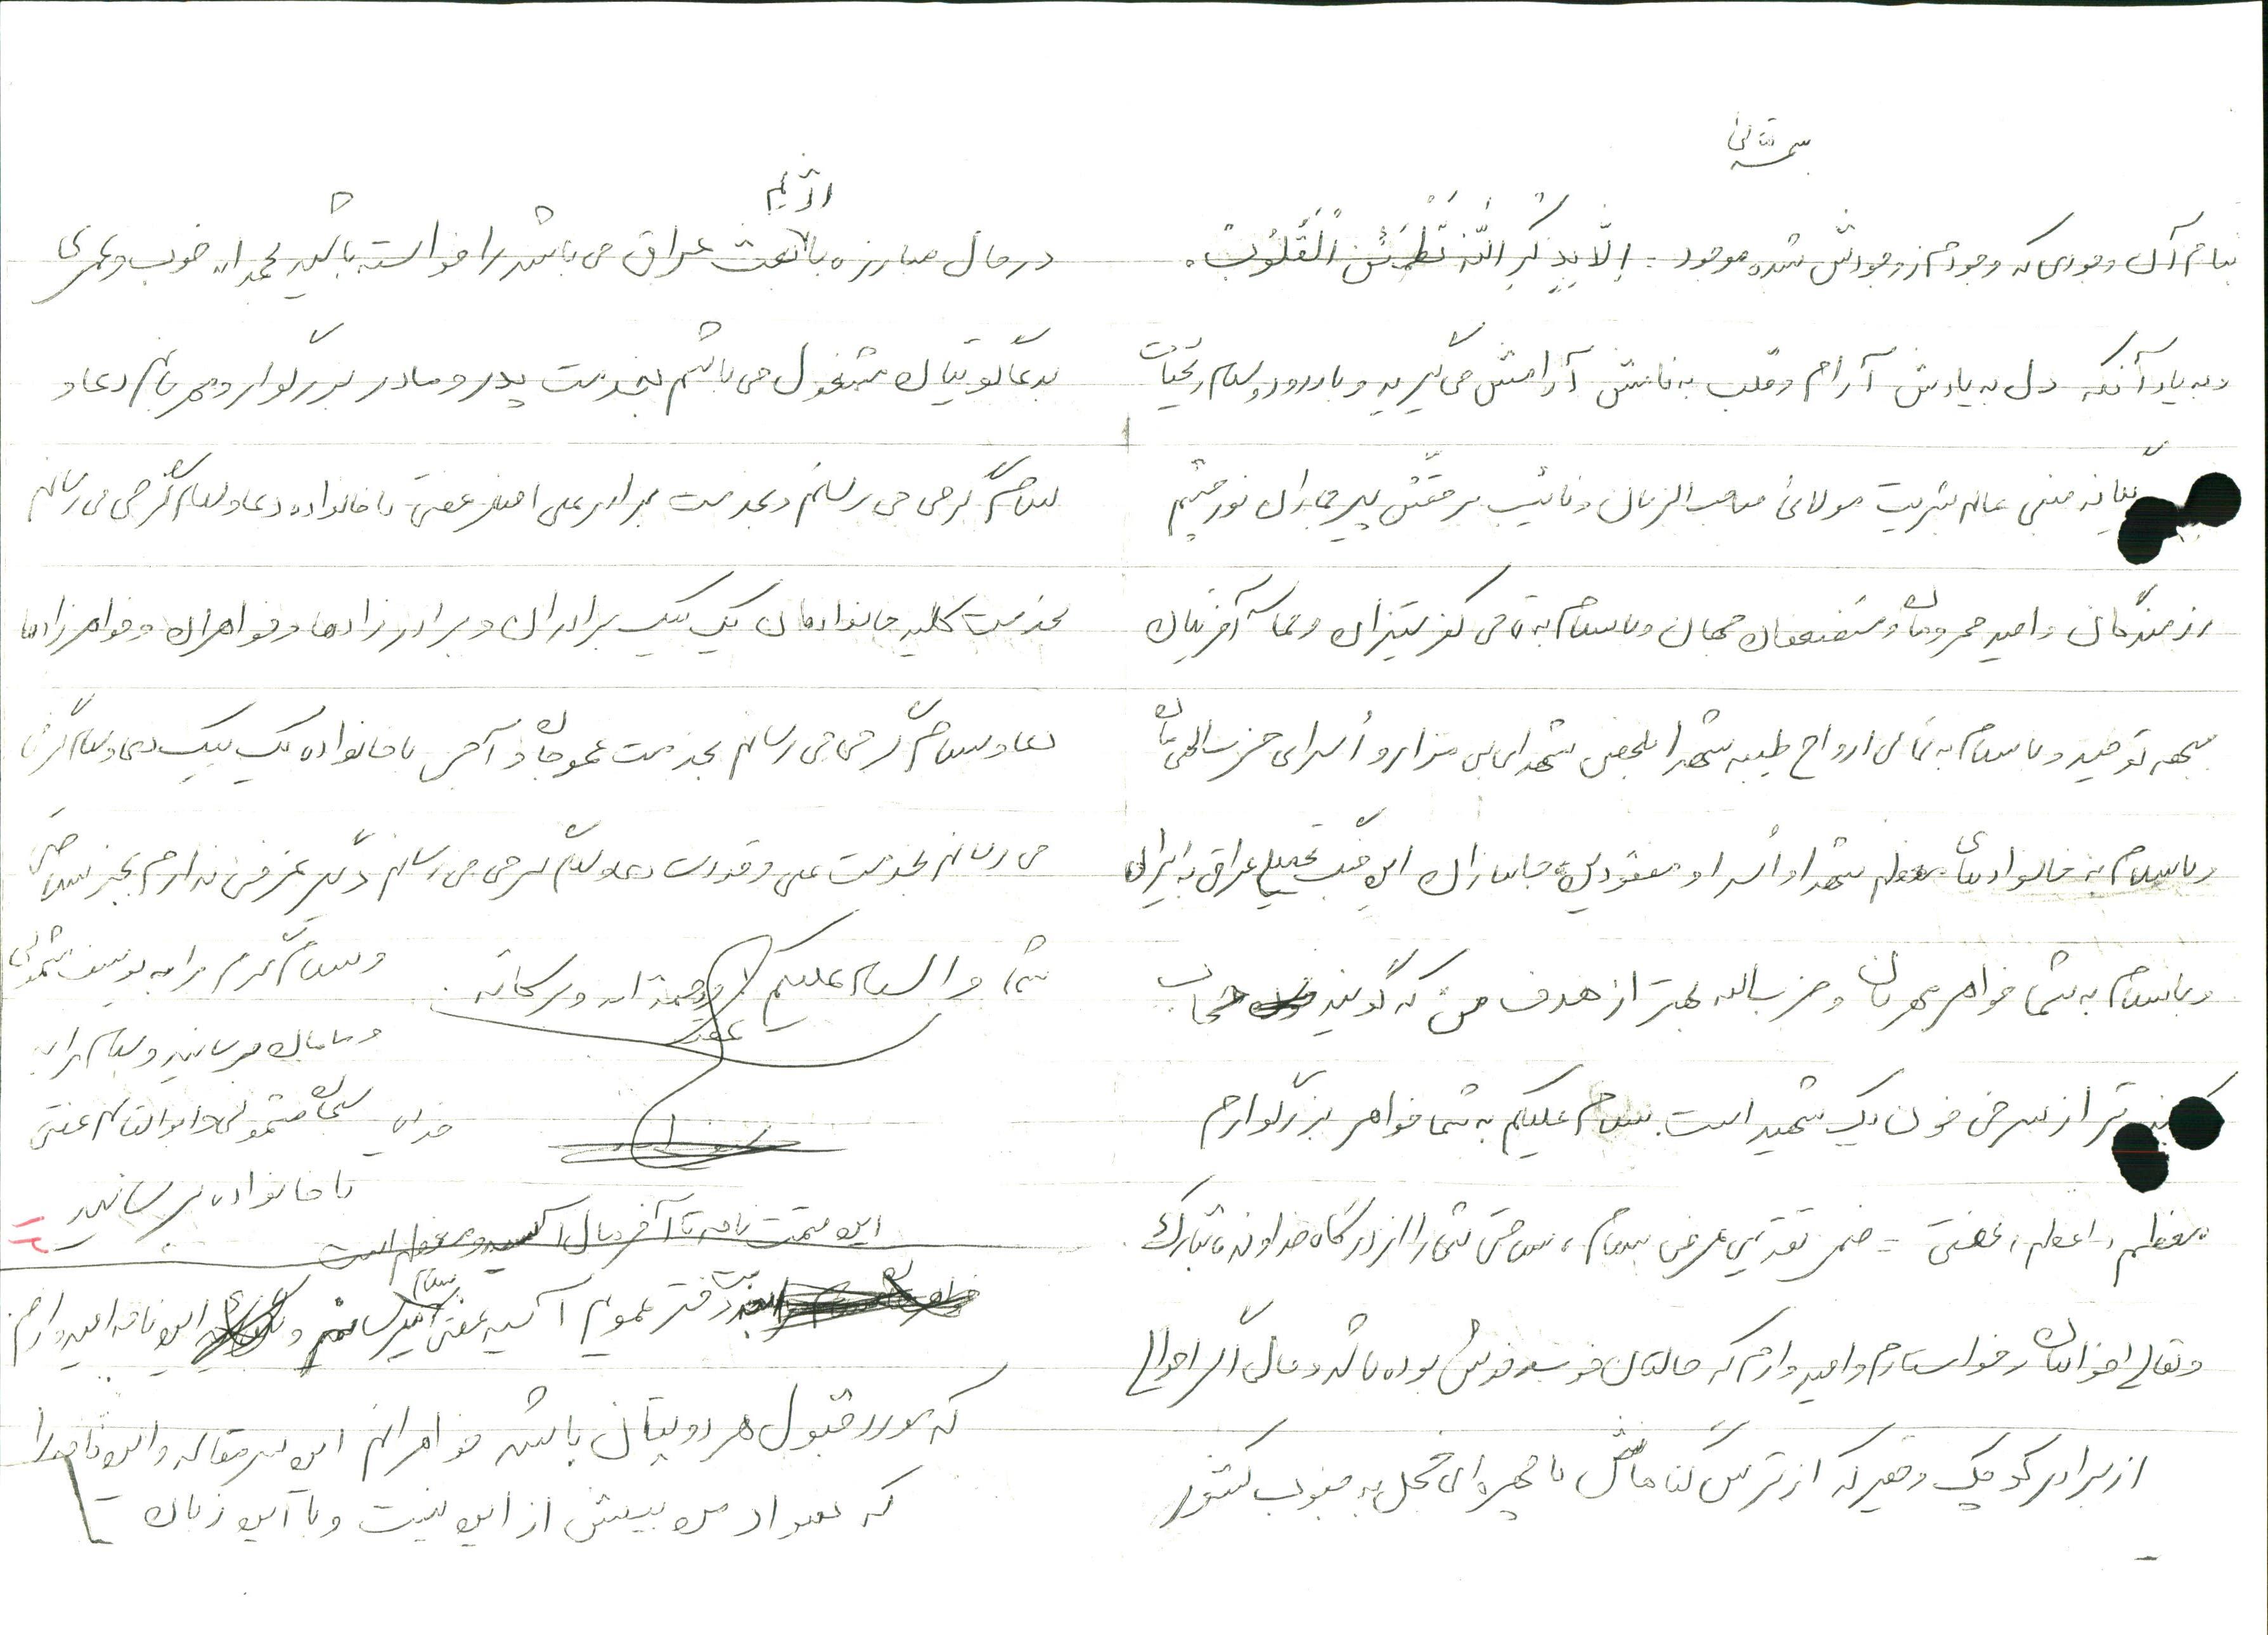 بسمه تعالی
بنام آن وجودی که وجودم ز وجودش شده موجود = اِلّا بِذِکرِ اللّهِ تَطمَئِنُّ الْقُلُوبْ.
و به یاد آنکه دل به یادش آرام و قلب به نامش آرامش می‌گیرد و با درود و سلام و تحیات
یگانه منجی عالم بشریت مولانا صاحب الزمان و نائب برحقش پیر جماران نور چشم
رزمندگان و امید محرومان و مستضعفان جهان و با سلام به تمامی کفرستیزان و حماسه آفرینان
جبهه توحید و با سلام به تمامی ارواح طیبه شهدا بلخص شهدای بی مزار و اُسرای حزب الهی مان
و با سلام به خانوادهای معظم شهدا و اُسرا و مفقودین و جانبازان این جنگ تحمیلی عراق به ایران
و با سلام به شما خواهر مهربان و حزب الله بهتر از هدف من که گویند حجاب
کوبنده تر از سرخی خون یک شهید است. سلام علیکم به شما خواهر بزرگوارم
معظم، اعظم، عفتی = ضمن تقدیم عرض سلام، سلامتی شما را از درگاه خداوند تبارک
و تعالی خواهان و خواستارم و امیدوارم که حالتان خوب و خوش بوده باشد و حالی اگر احوالی
از برادر کوچک و حقیر که از ترس گناهانش با چهره‌ای خجل به جنوب کشور
در حال مبارزه با بعث عراق می باشد را خواسته باشید بحمد الله خوب و عمری
رژیم
به دعاگوئیتان مشغول می باشم بخدمت پدر و مادر بزرگوار و مهربانم دعا و
سلام گرمی می رسانم و بخدمت برادر علی اصغر عفتی با خانواده دعا و سلام گرمی می رسانم
بخدمت کلیه خانوادمان یک یک برادران و برادرزادها و خواهران و خواهرزادها
دعا و سلام گرمی می رسانم بخدمت عموجان و آجی با خانواده یک یک دعا و سلام گرمی
می رسانم بخدمت علی و قدرت دعا و سلام گرمی می رسانم دیگر عرضی ندارم بجز سلامتی
شما والسلام علیکم و رحمة الله و برکاته.
و سلام گرم مرا به یوسف شمولی
و مامان برسانید و سلام مرا به
سبحان شمولی و ابوالقاسم عفتی
با خانواده برسانید
این قسمت نامه تا آخر مال آسیه و معظم است
دختر عمویم آسیه عفتی سلام میرسانم و این نامه امیدوارم
که مورد قبول هر دویتان باشد خواهرانم این سرمقاله و این نامه را
که سواد من بیش از این نیست و با این زبان